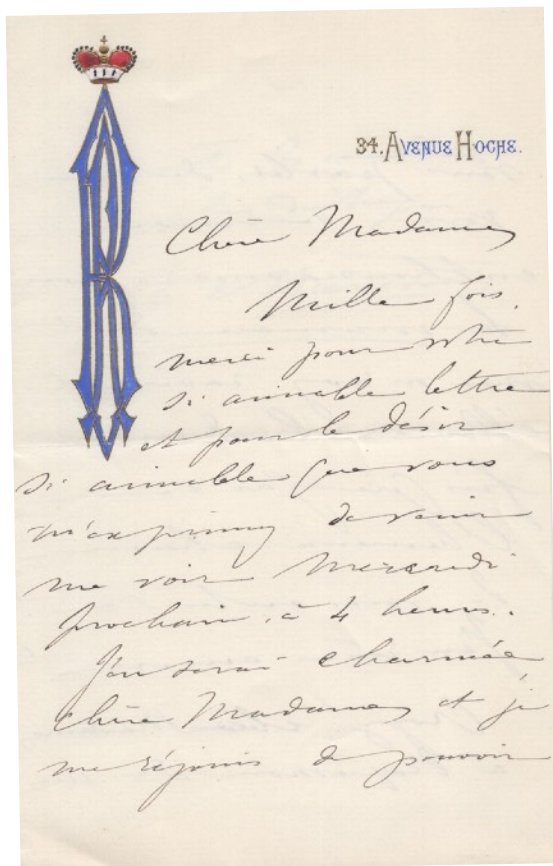 34. AVENUE HOCHE.
Chère Madame,
Mille fois.
merci pour votre
si aimable lettre
et pour le désir
si aimable que vous
m'exprimez de venir
me voir Mercredi
prochain, à 4 heures.
J'en serai charmée
chère Madame, et je
me réjouis de pouvoir